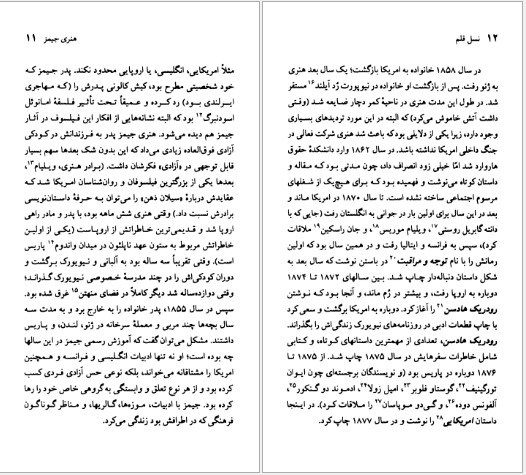 هنری جیمز ۱۱
مثلاً امریکایی، انگلیسی، یا اروپایی محدود نکند. پدر جیمز که
خود شخصیتی مطرح بود، کیش کالونی پدرش را (که مهاجری
ایرلندی بود) رد کرده و عمیقاً تحت تأثیر فلسفهٔ امانوئل
اسودنبرگ۱۲ بود که البته نشانه‌هایی از افکار این فیلسوف در آثار
جیمز هم دیده می‌شود. هنری جیمز پدر به فرزندانش در کودکی
آزادی فوق‌العاده زیادی می‌داد که این بدون شک بعدها سهم بسیار
قابل توجهی در «آزادی» فکرشان داشت. (برادر هنری، ویلیام۱۳،
بعدها یکی از بزرگترین فیلسوفان و روان‌شناسان امریکا شد که
عقایدش دربارهٔ «سیلان ذهن» را می‌توان به حرفهٔ داستان‌نویسی
برادرش نسبت داد.) وقتی هنری شش ماهه بود، با پدر و مادر راهی
اروپا شد و قدیمی‌ترین خاطراتش از اروپاست (یکی از اولین
خاطراتش مربوط به ستون عهد ناپلئون در میدان واندوم۱۴ پاریس
است). وقتی تقریباً سه ساله بود به آلبانی و نیویورک برگشت و
دوران کودکی‌اش را در چند مدرسهٔ خصوصی نیویورک گذراند؛
وقتی دوازده‌ساله شد دیگر کاملاً در فضای منهتن۱۵ غرق شده بود.
سپس در سال ۱۸۵۵، پدر خانواده را به خارج برد و به مدت سه
سال بچه‌ها چند مربی و معملهٔ سرخانه در ژنو، لندن، و پاریس
داشتند. مشکل می‌توان گفت که آموزش رسمی جیمز در این سالها
چه بوده است؛ او نه تنها ادبیات انگلیسی و فرانسه و همچنین
امریکا را مشتاقانه می‌خواند، بلکه نوعی حس آزادی فردی کسب
کرده بود و از هر نوع تعلق و وابستگی به گروهی خاص خود را رها
کرده بود. جیمز با ادبیات، موزه‌ها، گالریها، و مناظر گوناگون
فرهنگی که در اطرافش بود زندگی می‌کرد.
۱۲ نسل قلم
در سال ۱۸۵۸ خانواده به امریکا بازگشت؛ یک سال بعد هنری
به ژنو رفت. پس از بازگشت او خانواده در نیوپورت رُد آیلند۱۶ مستقر
شد. در طول این مدت هنری در ناحیهٔ کمر دچار ضایعه شد (وقتی
داشت آتش خاموش می‌کرد) که البته در این مورد تردیدهای بسیاری
وجود دارد، زیرا یکی از دلایلی بود که باعث شد هنری شرکت فعالی در
جنگ داخلی امریکا نداشته باشد. در سال ۱۸۶۲ وارد دانشکدهٔ حقوق
هاروارد شد امّا خیلی زود انصراف داد، چون مدتی بود که مقاله و
داستان کوتاه می‌نوشت و فهمیده بود که برای هیچ‌یک از شغلهای
مرسوم اجتماعی ساخته نشده است. تا سال ۱۸۷۰ در امریکا ماند و
بعد در این سال برای اولین بار در جوانی به انگلستان رفت (جایی که با
دانته گابریل روستی۱۷، ویلیام موریس۱۸، و جان راسکین۱۹ ملاقات
کرد)، سپس به فرانسه و ایتالیا رفت و در همین سال بود که اولین
رمانش را با نام توجه و مراقبت۲۰ در باستن نوشت که سال بعد به
شکل داستان دنباله‌دار چاپ شد. بین سالهای ۱۸۷۲ تا ۱۸۷۴
دوباره به اروپا رفت، و بیشتر در رُم ماند، و آنجا بود که نوشتن
رودریک هادسن۲۱ را آغاز کرد. دوباره به امریکا برگشت و سعی کرد
با چاپ قطعات ادبی در روزنامه‌های نیویورک زندگی‌اش را بگذراند.
رودریک هادسن، تعدادی از مهمترین داستانهای کوتاه، و کتابی
شامل خاطرات سفرهایش در سال ۱۸۷۵ چاپ شد. از ۱۸۷۵ تا
۱۸۷۶ دوباره در پاریس بود (و نویسندگان برجسته‌ای چون ایوان
تورگینیف۲۲، گوستاو فلوبر۲۳، امیل زولا۲۴، ادموند دو گنکور۲۵،
آلفونس دوده۲۶، و گی‌دو موپاسان۲۷ را ملاقات کرد). در اینجا
داستان امریکایی۲۸ را نوشت و در سال ۱۸۷۷ چاپ کرد.